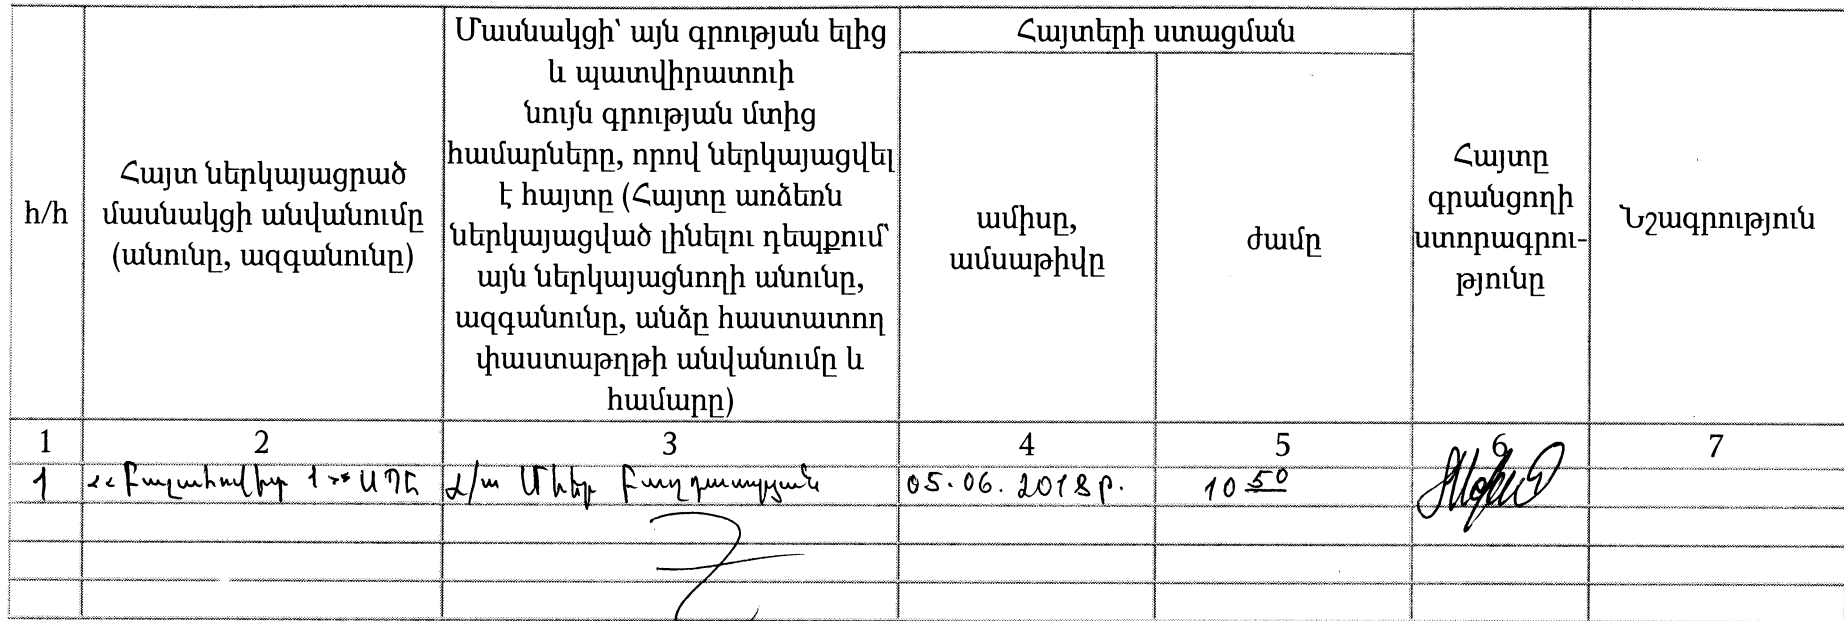 հ/հ
Հայտ ներկայացրած
մասնակցի անվանումը
(անունը, ազգանունը)
Մասնակցի՝ այն գրության ելից
և պատվիրատուի
նույն գրության մտից
համարները, որով ներկայացվել
է հայտը (Հայտը առձեռն
ներկայացված լինելու դեպքում՝
այն ներկայացնողի անունը,
ազգանունը, անձը հաստատող
փաստաթղթի անվանումը և
համարը)
Հայտերի ստացման
ամիսը,
ամսաթիվը
ժամը
Հայտը
գրանցողի
ստորագրու-
թյունը
Նշագրություն
1 2 3 4 5 6 7
1 1>> ՍՊԸ Մհեր Բաղդասարյան 05.06.2018թ. 10 50